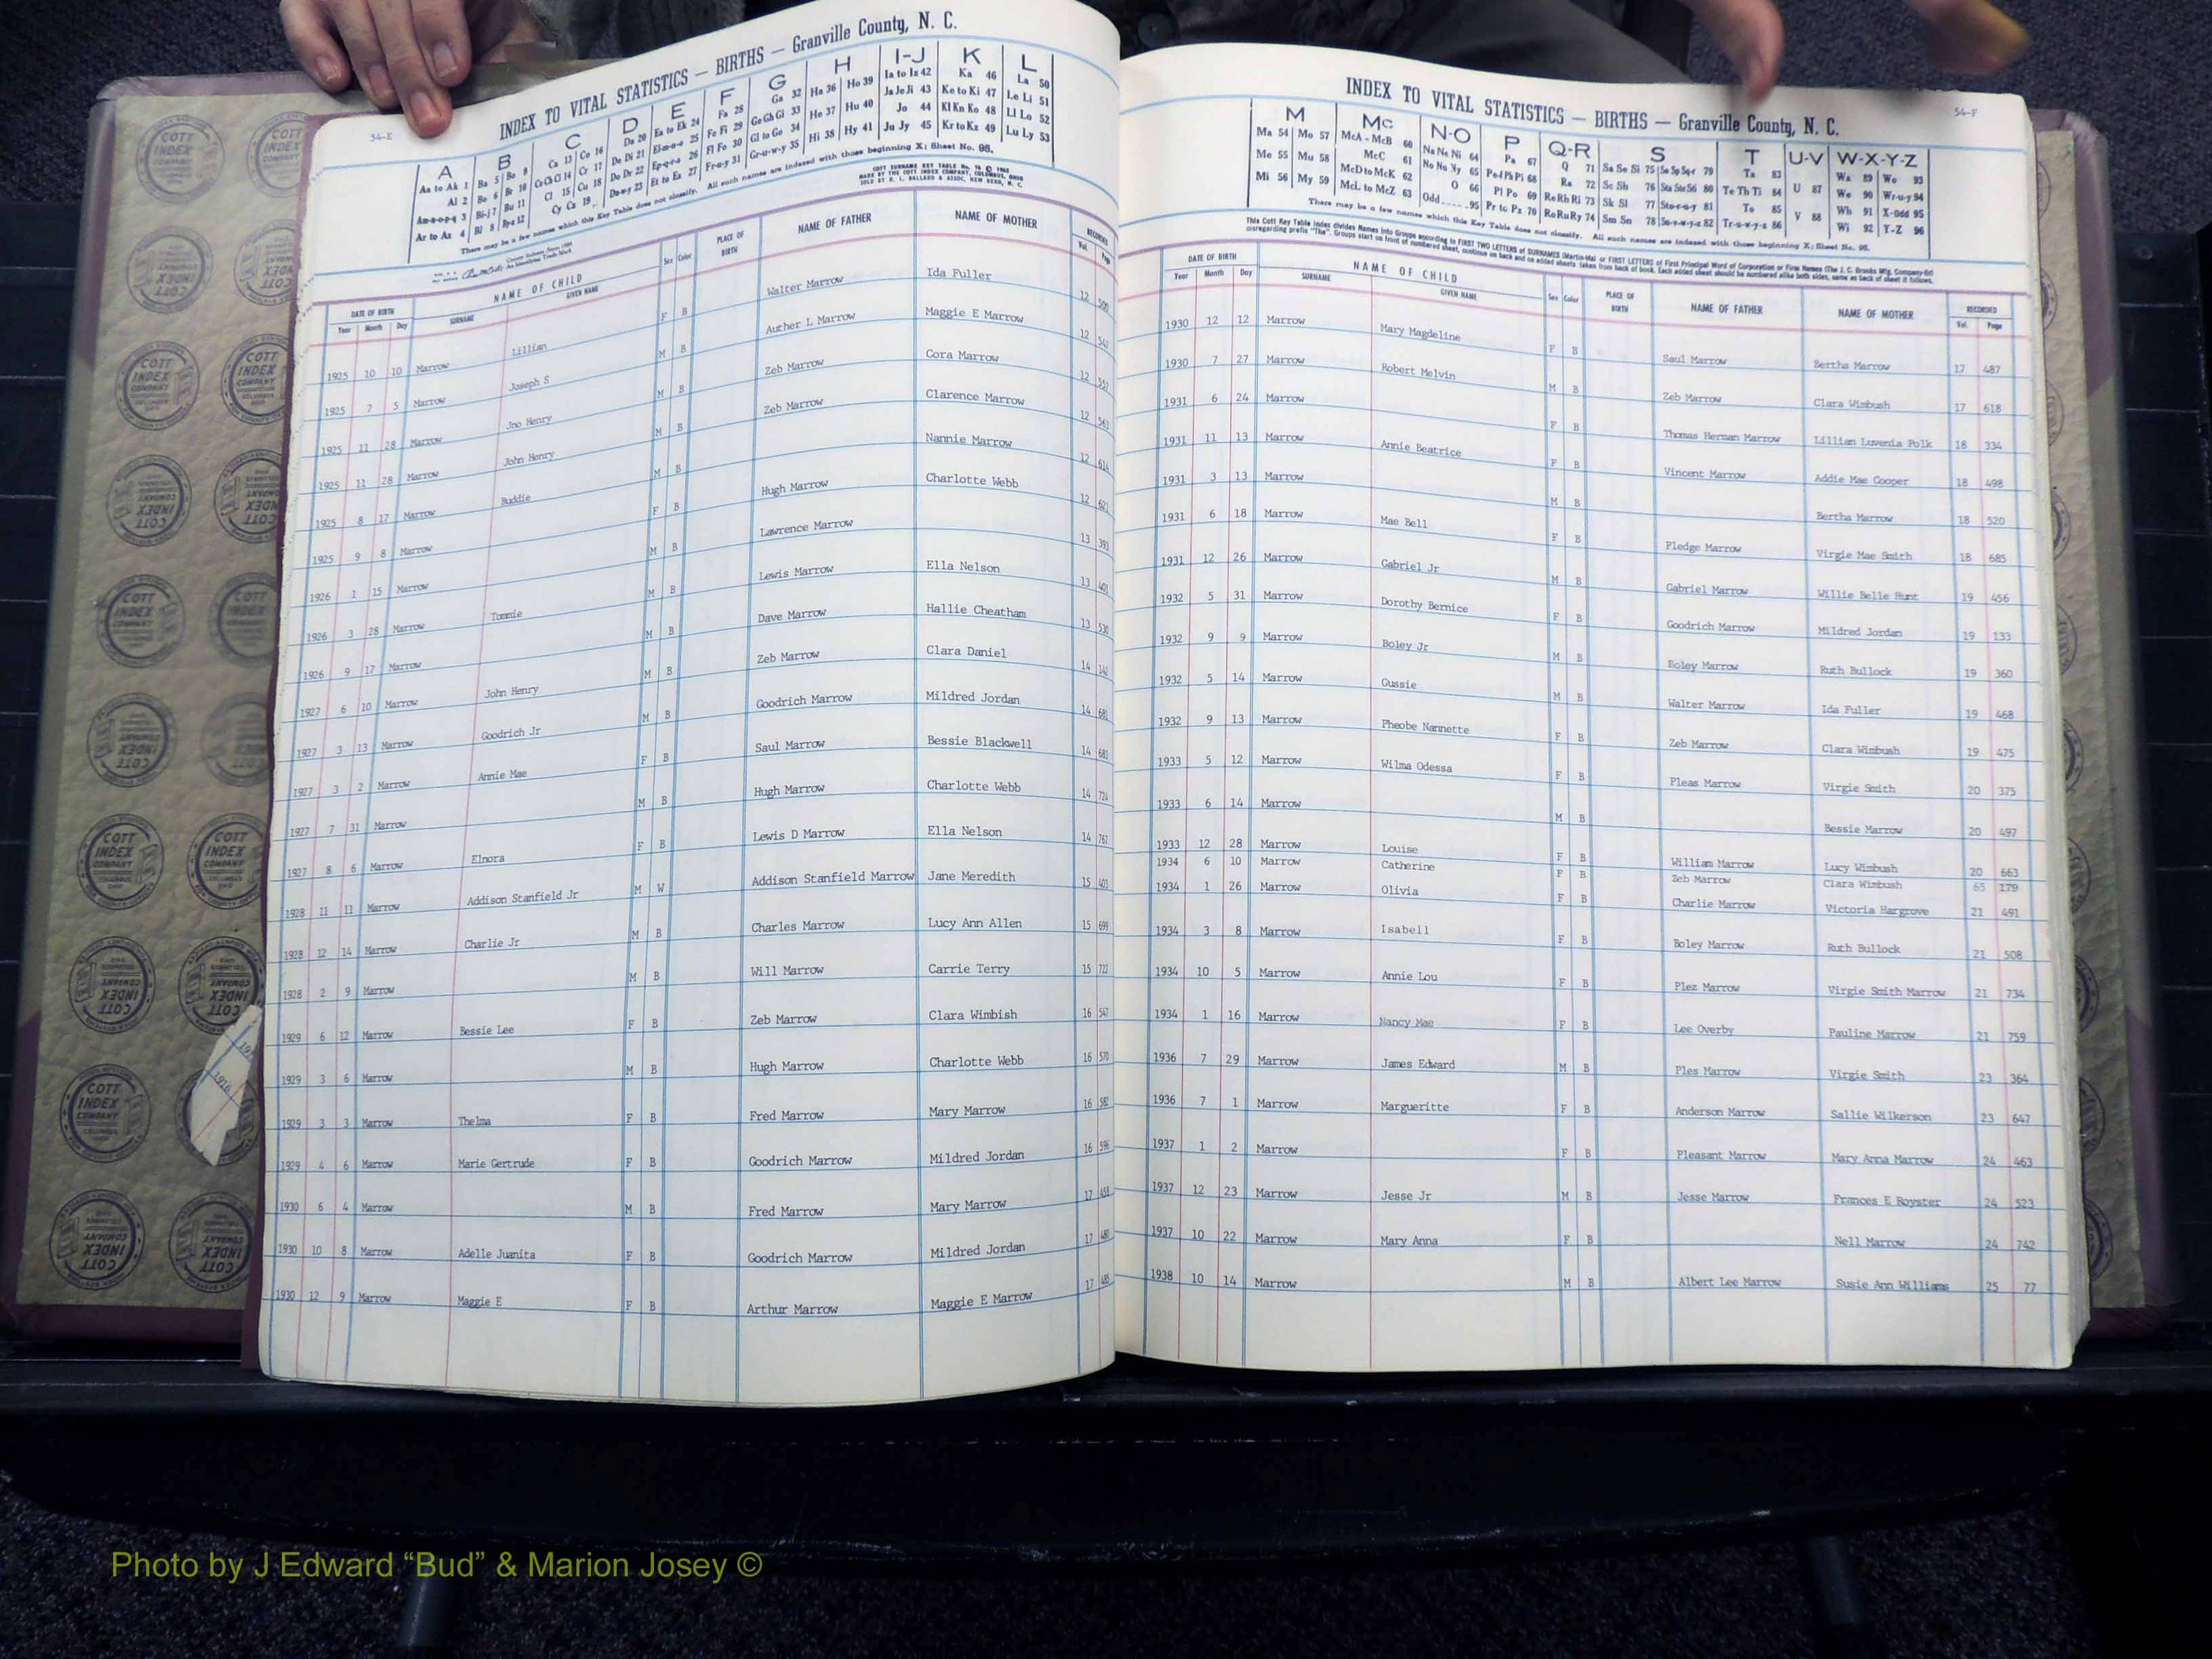 54-E
INDEX TO VITAL STATISTICS — BIRTHS — Granville County, N. C.
A B C D E F G H I-J K L
Aa to Ak 1 Ba 5 Be 9 Ca 13 Co 16 Da 20 Ea to Ek 24 Fa 28 Ga 32 Ha 36 Ho 39 Ia to Iz 42 Ka 46 La 50
Al 2 Bo 6 Br 10 Ce Ch Ci 14 Cr 17 De Di 21 El-m-n-o 25 Fe Fi 29 Ge Gh Gi 33 He 37 Hu 40 Ja Je Ji 43 Ke to Ki 47 Le Li 51
Am-n-o-p-q 3 Bi-j 7 Bu 11 Cl 15 Cu 18 Do Dr 22 Ep-q-r-s 26 Fl Fo 30 Gl to Go 34 Hi 38 Hy 41 Jo 44 Kl Kn Ko 48 Ll Lo 52
Ar to Az 4 Bl 8 By-z 12 Cy Cz 19 Du-w-y 23 Et to Ez 27 Fr-u-y 31 Gr-u-w-y 35 Ju Jy 45 Kr to Kz 49 Lu Ly 53
There may be a few names which this Key Table does not classify. All such names are indexed with those beginning X; Sheet No. 96.
DATE OF BIRTH NAME OF CHILD Sex Color PLACE OF BIRTH NAME OF FATHER NAME OF MOTHER RECORDED
Year Month Day SURNAME GIVEN NAME Vol. Page
1925 10 10 Marrow Lillian F B Walter Marrow Ida Fuller 12 500
1925 7 5 Marrow Joseph S M B Auther L Marrow Maggie E Marrow 12 542
1925 11 28 Marrow Jno Henry M B Zeb Marrow Cora Marrow 12 557
1925 11 28 Marrow John Henry M B Zeb Marrow Clarence Marrow 12 563
1925 8 17 Marrow Buddie M B Nannie Marrow 12 614
1925 9 8 Marrow F B Hugh Marrow Charlotte Webb 12 621
1926 1 15 Marrow M B Lawrence Marrow 13 393
1926 3 28 Marrow Tommie M B Lewis Marrow Ella Nelson 13 401
1926 9 17 Marrow M B Dave Marrow Hallie Cheatham 13 530
1927 6 10 Marrow John Henry M B Zeb Marrow Clara Daniel 14 142
1927 3 13 Marrow Goodrich Jr M B Goodrich Marrow Mildred Jordan 14 681
1927 3 2 Marrow Annie Mae F B Saul Marrow Bessie Blackwell 14 683
1927 7 31 Marrow M B Hugh Marrow Charlotte Webb 14 724
1927 8 6 Marrow Elnora F B Lewis D Marrow Ella Nelson 14 767
1928 11 11 Marrow Addison Stanfield Jr M W Addison Stanfield Marrow Jane Meredith 15 403
1928 12 14 Marrow Charlie Jr M B Charles Marrow Lucy Ann Allen 15 699
1928 2 9 Marrow M B Will Marrow Carrie Terry 15 722
1929 6 12 Marrow Bessie Lee F B Zeb Marrow Clara Wimbish 16 547
1929 3 6 Marrow M B Hugh Marrow Charlotte Webb 16 570
1929 3 3 Marrow Thelma F B Fred Marrow Mary Marrow 16 582
1929 4 6 Marrow Marie Gertrude F B Goodrich Marrow Mildred Jordan 16 596
1930 6 4 Marrow M B Fred Marrow Mary Marrow 17
1930 10 8 Marrow Adelle Juanita F B Goodrich Marrow Mildred Jordan 17 480
1930 12 9 Marrow Maggie E F B Arthur Marrow Maggie E Marrow 17
54-F
INDEX TO VITAL STATISTICS — BIRTHS — Granville County, N. C.
M Mc N-O P Q-R S T U-V W-X-Y-Z
Ma 54 Mo 57 McA - McB 60 Na Ne Ni 64 Pa 67 Q 71 Sa Se Si 75 So Sp Sq-r 79 Ta 83 Wa 89 Wo 93
Me 55 Mu 58 McC 61 No Nu Ny 65 Pe-f Ph Pi 68 Ra 72 Sc Sh 76 Sta Ste Sti 80 Te Th Ti 84 U 87 We 90 Wr-u-y 94
Mi 56 My 59 McD to McK 62 O 66 Pl Po 69 Re Rh Ri 73 Sk Sl 77 Sto-r-u-y 81 To 85 V 88 Wh 91 X-Odd 95
McL to McZ 63 Odd 95 Pr to Pz 70 Ro Ru Ry 74 Sm Sn 78 Su-v-w-y-z 82 Tr-u-w-y-z 86 Wi 92 Y-Z 96
There may be a few names which this Key Table does not classify. All such names are indexed with those beginning X; Sheet No. 96.
This Cott Key Table Index divides Names into Groups according to FIRST TWO LETTERS of SURNAMES (Martin-Ma) or FIRST LETTERS of First Principal Word of Corporation or Firm Names (The J. C. Brooks Mfg. Company-Br)
disregarding prefix "The". Groups start on front of numbered sheet, continue on back and on added sheets taken from back of book. Each added sheet should be numbered alike both sides, same as back of sheet it follows.
DATE OF BIRTH NAME OF CHILD Sex Color PLACE OF BIRTH NAME OF FATHER NAME OF MOTHER RECORDED
Year Month Day SURNAME GIVEN NAME Vol. Page
1930 12 12 Marrow Mary Magdeline F B Saul Marrow Bertha Marrow 17 487
1930 7 27 Marrow Robert Melvin M B Zeb Marrow Clara Wimbush 17 618
1931 6 24 Marrow F B Thomas Herman Marrow Lillian Luvenia Polk 18 334
1931 11 13 Marrow Annie Beatrice F B Vincent Marrow Addie Mae Cooper 18 498
1931 3 13 Marrow M B Bertha Marrow 18 520
1931 6 18 Marrow Mae Bell F B Pledge Marrow Virgie Mae Smith 18 685
1931 12 26 Marrow Gabriel Jr M B Gabriel Marrow Willie Belle Hunt 19 456
1932 5 31 Marrow Dorothy Bernice F B Goodrich Marrow Mildred Jordan 19 133
1932 9 9 Marrow Boley Jr M B Boley Marrow Ruth Bullock 19 360
1932 5 14 Marrow Gussie M B Walter Marrow Ida Fuller 19 468
1932 9 13 Marrow Pheobe Nannette F B Zeb Marrow Clara Wimbush 19 475
1933 5 12 Marrow Wilma Odessa F B Pleas Marrow Virgie Smith 20 375
1933 6 14 Marrow M B Bessie Marrow 20 497
1933 12 28 Marrow Louise F B William Marrow Lucy Wimbush 20 663
1934 6 10 Marrow Catherine F B Zeb Marrow Clara Wimbush 65 179
1934 1 26 Marrow Olivia F B Charlie Marrow Victoria Hargrove 21 491
1934 3 8 Marrow Isabell F B Boley Marrow Ruth Bullock 21 508
1934 10 5 Marrow Annie Lou F B Plez Marrow Virgie Smith Marrow 21 734
1934 1 16 Marrow Nancy Mae F B Lee Overby Pauline Marrow 21 759
1936 7 29 Marrow James Edward M B Ples Marrow Virgie Smith 23 364
1936 7 1 Marrow Margueritte F B Anderson Marrow Sallie Wilkerson 23 647
1937 1 2 Marrow F B Pleasant Marrow Mary Anna Marrow 24 463
1937 12 23 Marrow Jesse Jr M B Jesse Marrow Frances E Royster 24 523
1937 10 22 Marrow Mary Anna F B Nell Marrow 24 742
1938 10 14 Marrow M B Albert Lee Marrow Susie Ann Williams 25 77
COTT INDEX COMPANY
Photo by J Edward “Bud” & Marion Josey ©